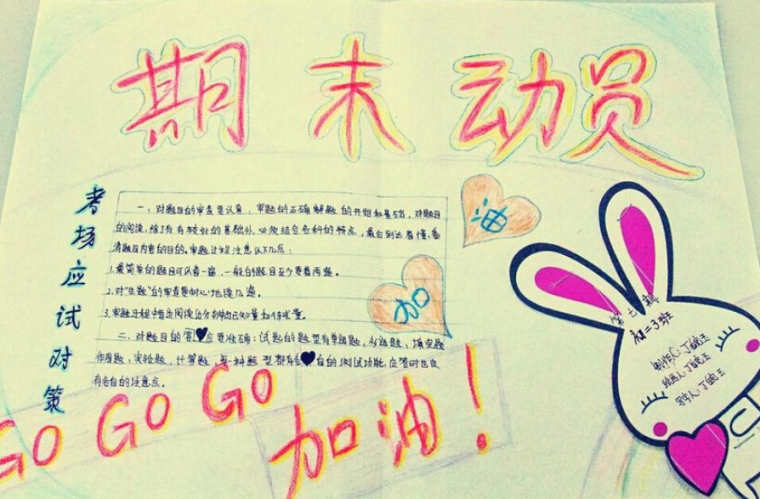 期末动员
考场应试对策
一、对题目的审查要认真,审题的正确解题的开始和基础,对题目
的阅读,除了有较好的基础外,必须结合各科的特点,最
清题目内容的目的。审题过程注意以下几点:
1.最简单的题目可以看一遍,一般的题目至少要看两遍。
2.对"生题"的审查要耐心地读几遍。
3.审题过程
二、对题目的答♥应要准确:试题的题型有单选题,多选题,填空题
作图题,实验题,计算题,每一种题型都有♥自的测试功能,应答时也应
有各自的注意点。
油
加
GO GO GO
加油!
初二3班